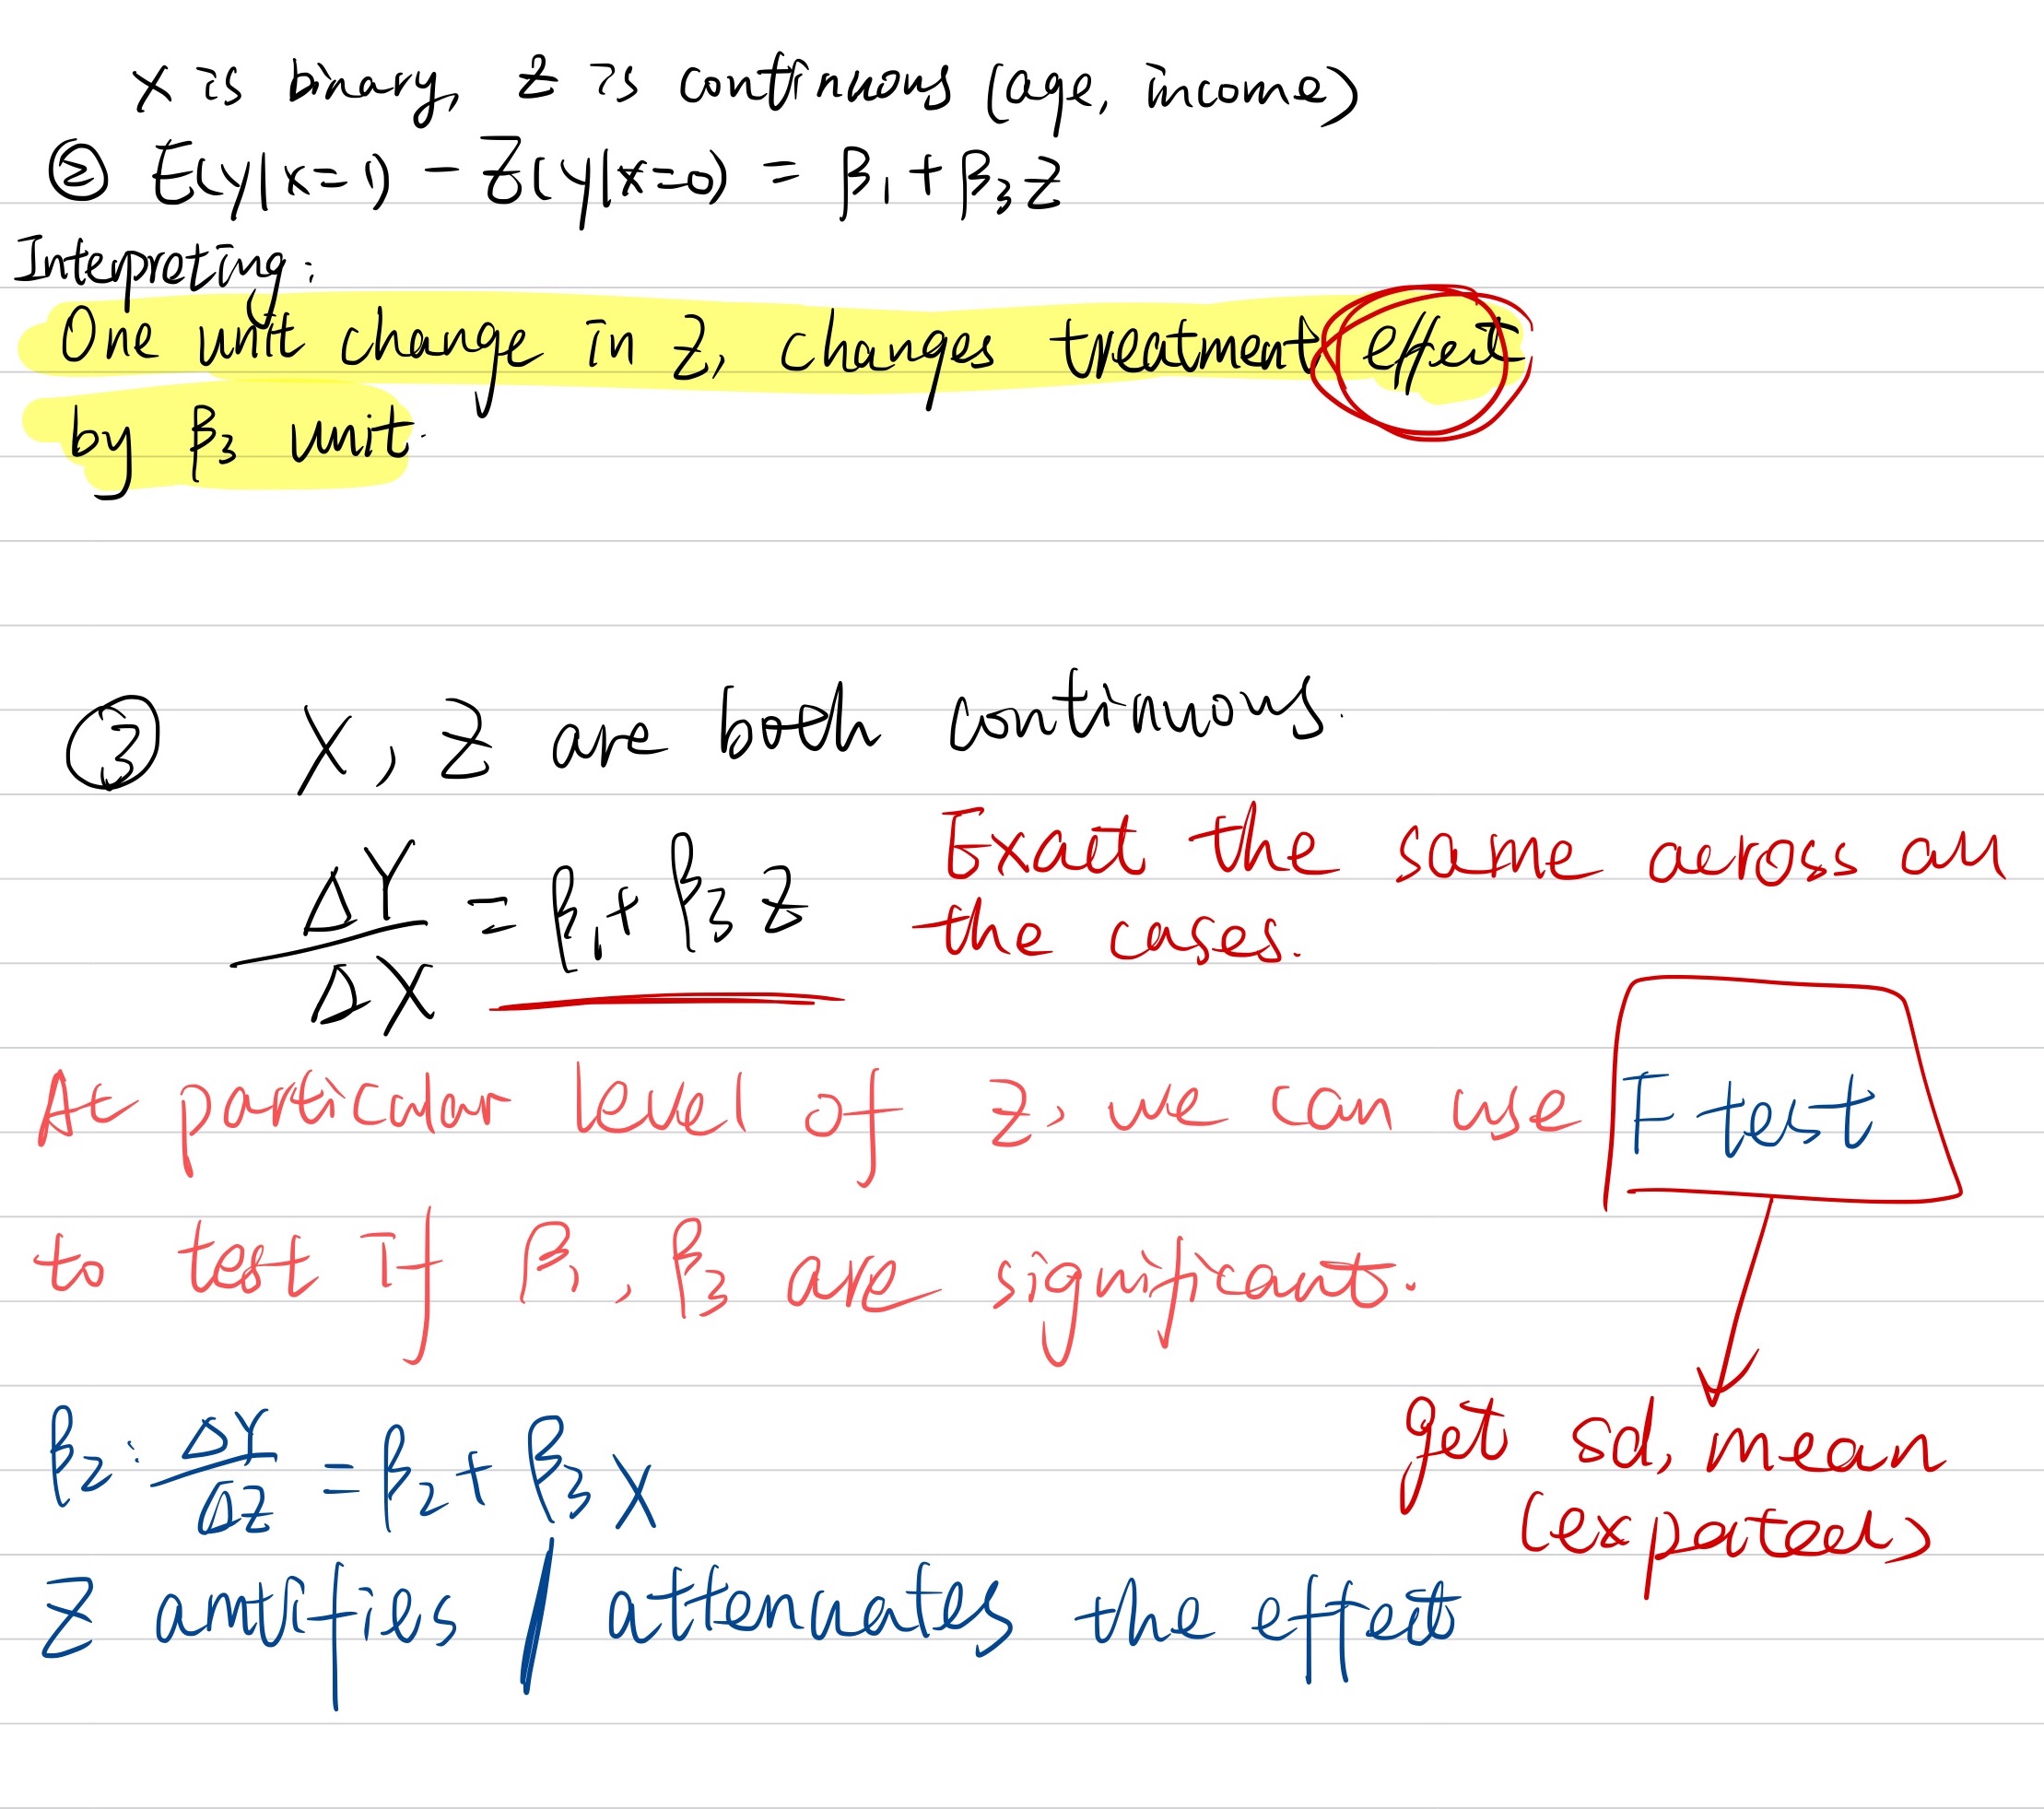 X is binary, Z is continuous (age, income)
② E(Y|X=1) - Z(Y|X=0) = β₁ + β₃Z
Interpreting:
One unit change in Z, changes treatment effect
by β₃ unit.
③ X, Z are both continuous.
ΔY/ΔX = β₁ + β₃ Z
Exact the same across all
the cases.
At particular level of Z, we can use F test
to test if β₁, β₃ are significant.
get sd, mean
(expected)
β₂: ΔY/ΔZ = β₂ + β₃X
Z amtifies / attenuates the effect